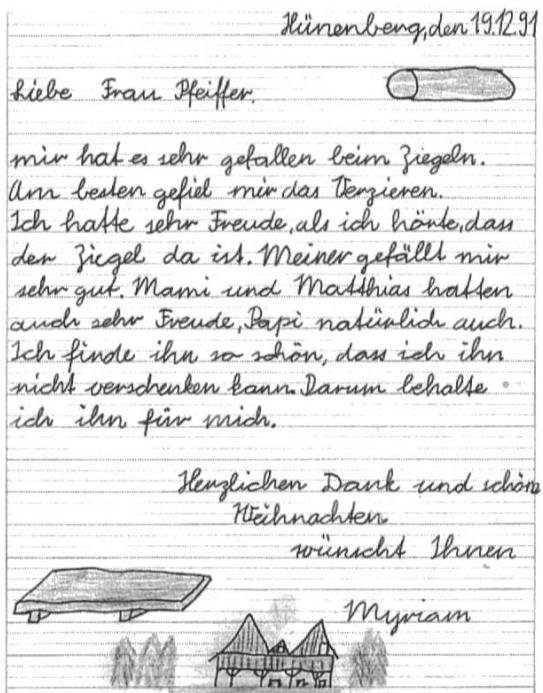 Hünenberg, den 19.12.91
Liebe Frau Pfeiffer.
mir hat es sehr gefallen beim Ziegeln.
Am besten gefiel mir das Verzieren.
Ich hatte sehr Freude, als ich hörte, dass
der Ziegel da ist. Meiner gefällt mir
sehr gut. Mami und Matthias hatten
auch sehr Freude, Papi natürlich auch.
Ich finde ihn so schön, dass ich ihn
nicht verschenken kann. Darum behalte
ich ihn für mich.
Herzlichen Dank und schöne
Weihnachten
wünscht Ihnen
Myriam